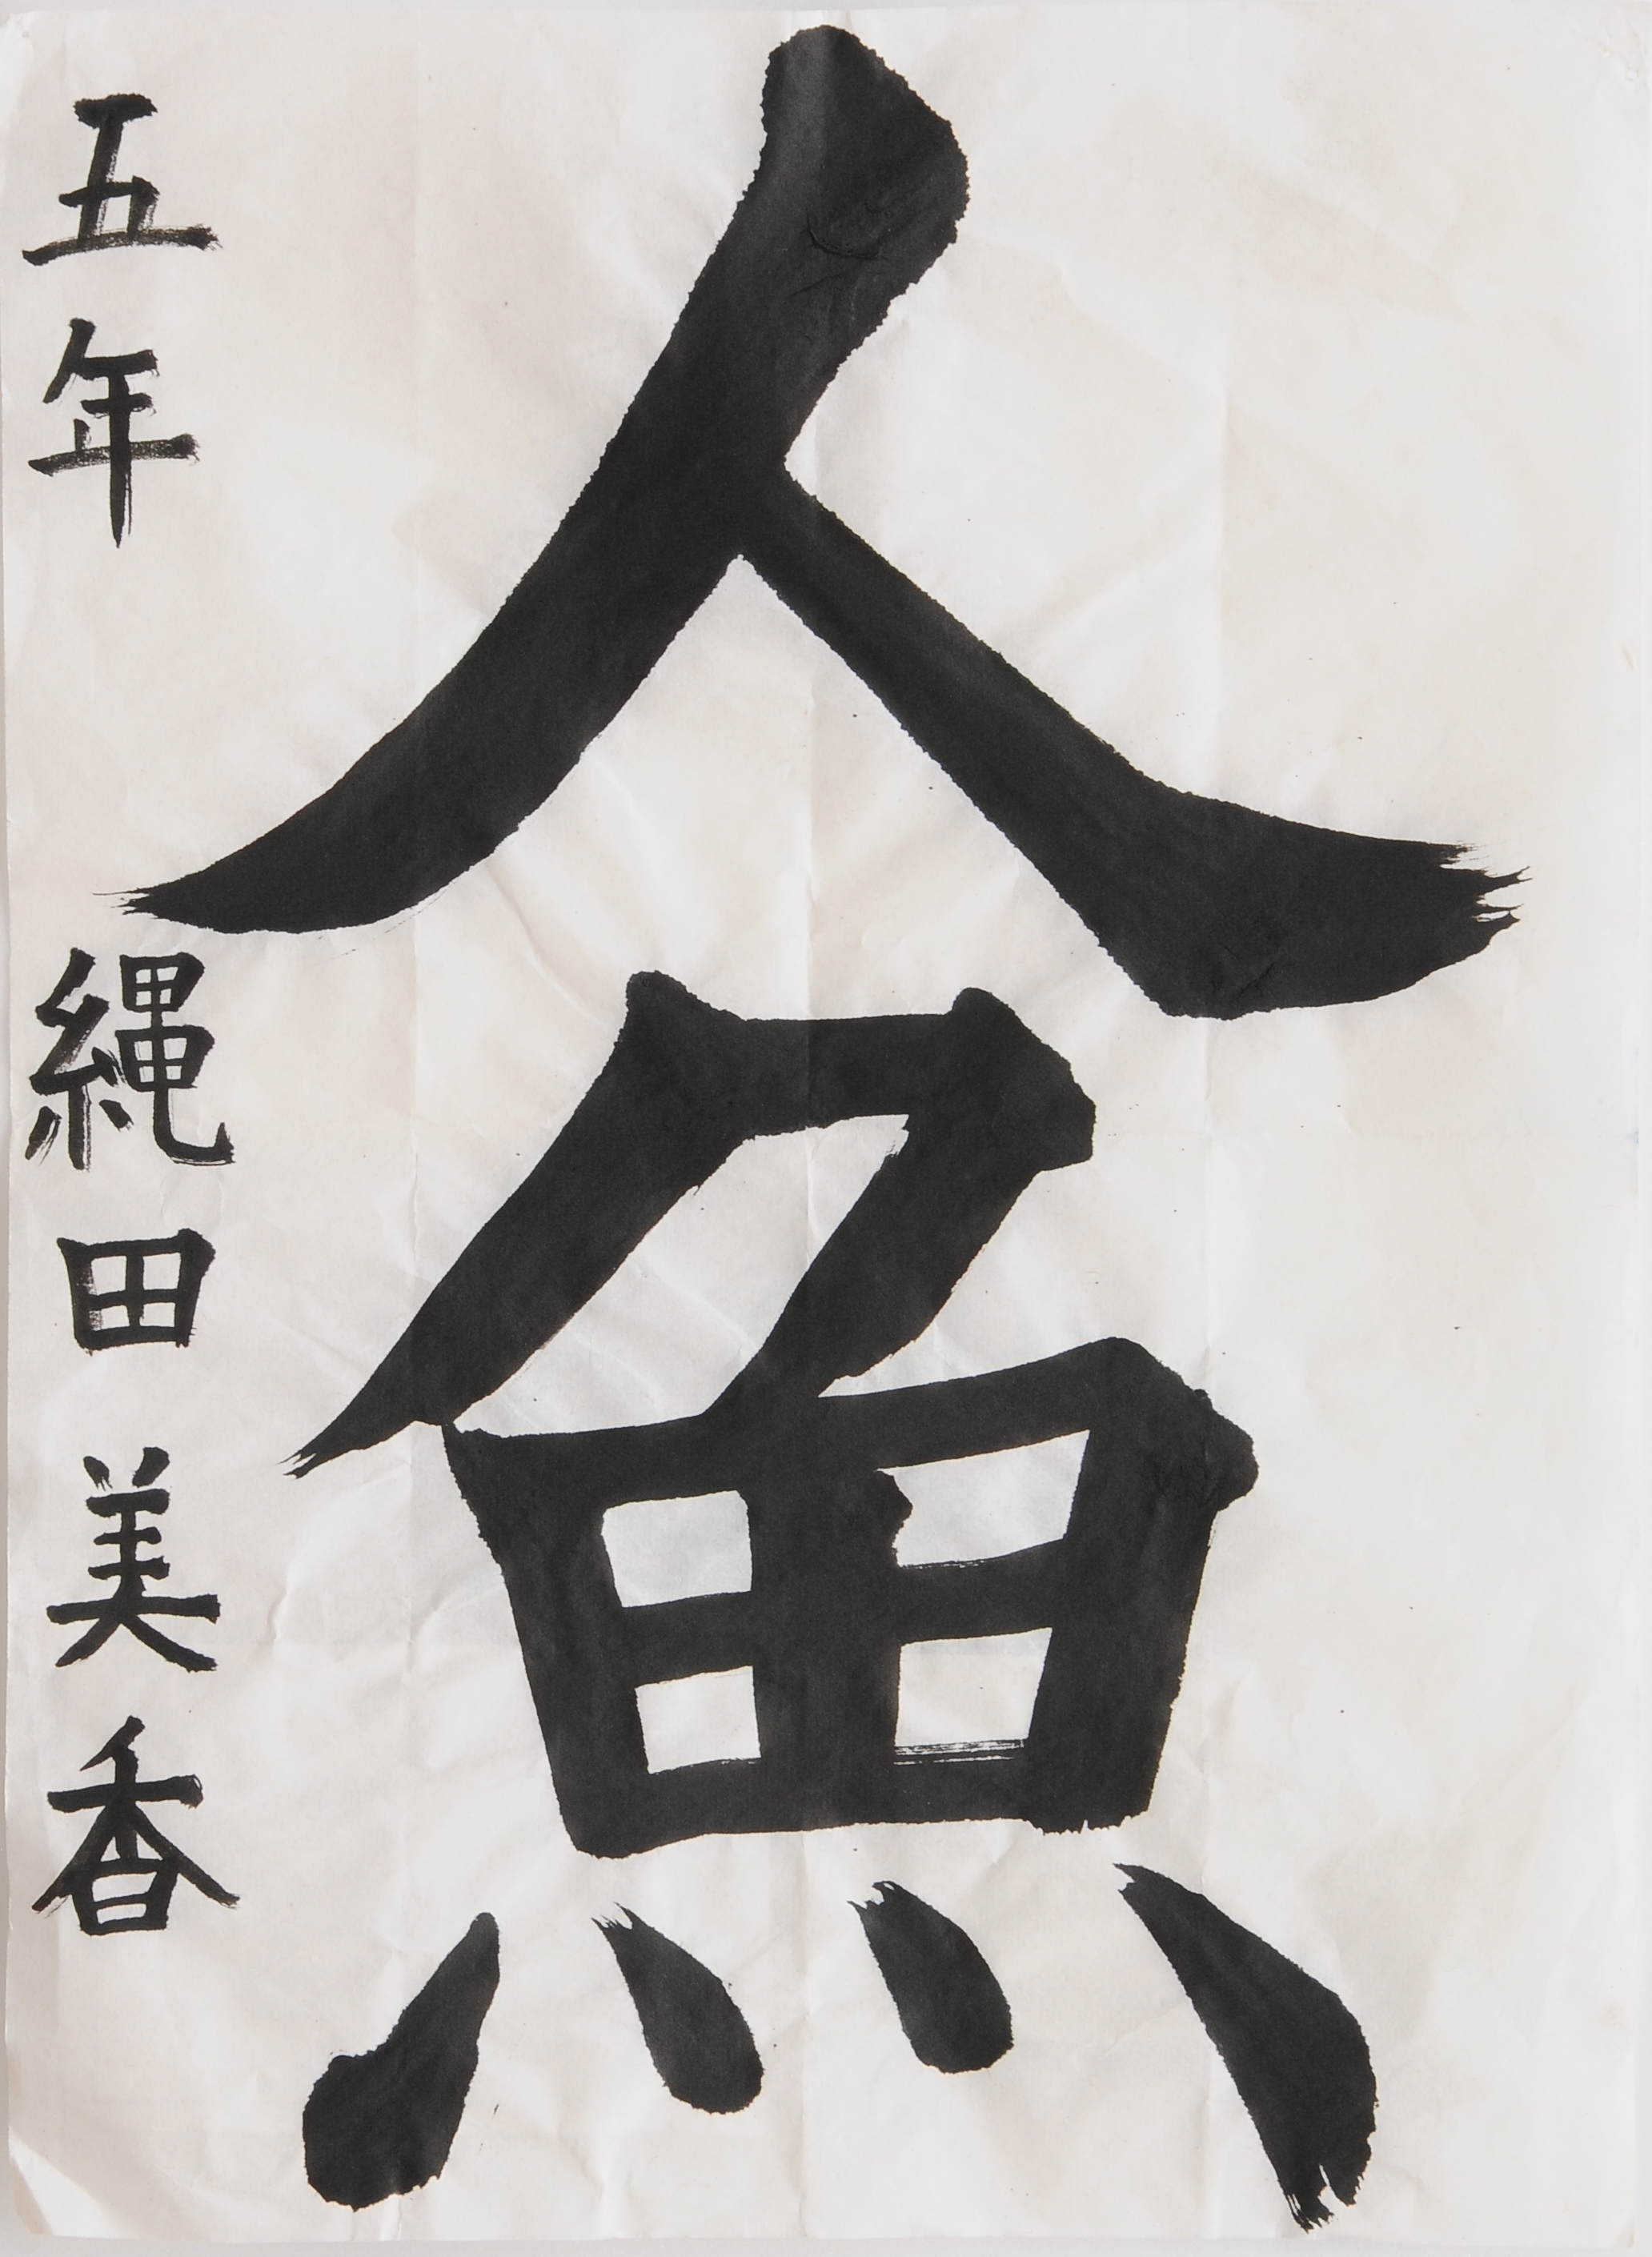 人魚
五年 縄田美香